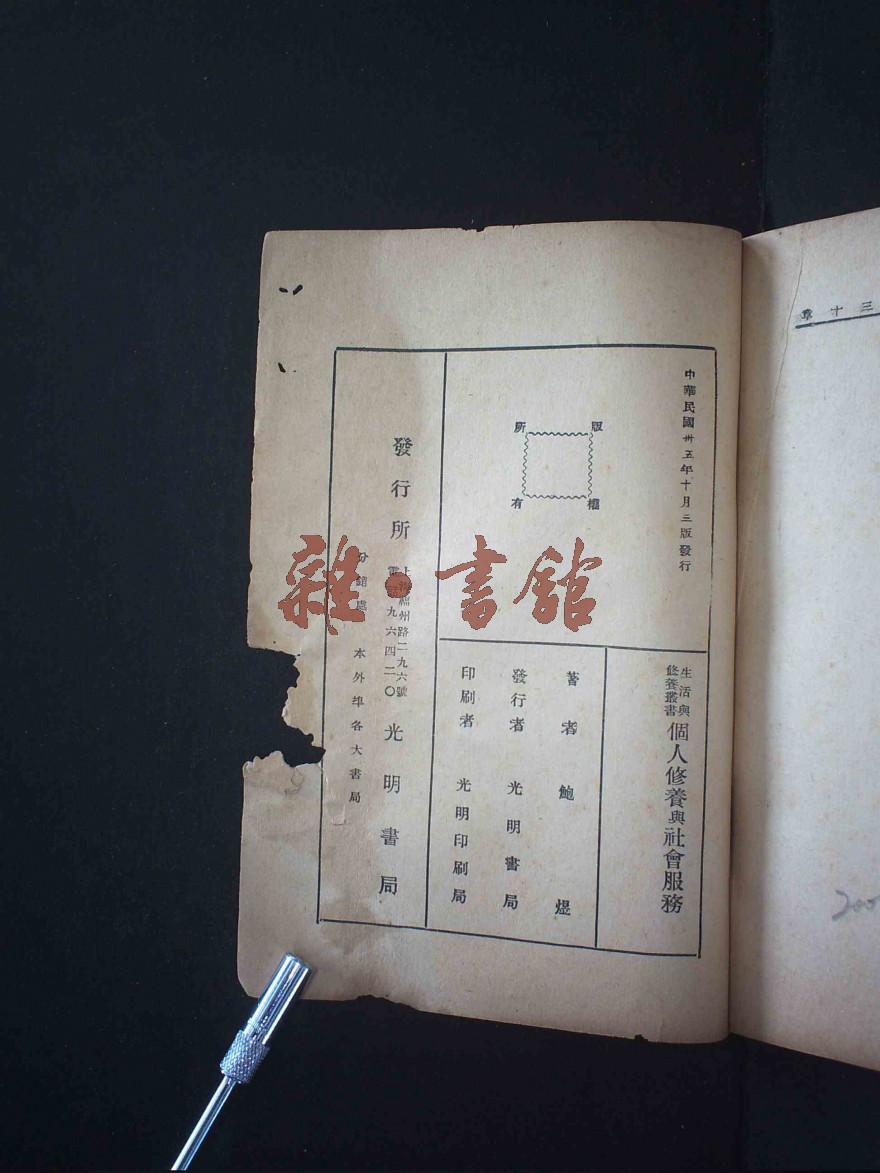 三十章
中華民國卅五年十月三版發行
版權所有
生活與修養叢書
個人修養與社會服務
著者 鮑煜
發行者 光明書局
印刷者 光明印刷局
發行所
上海福州路二九六號
電話九六四二〇
光明書局
分銷處 本外埠各大書局
雜·書館
200